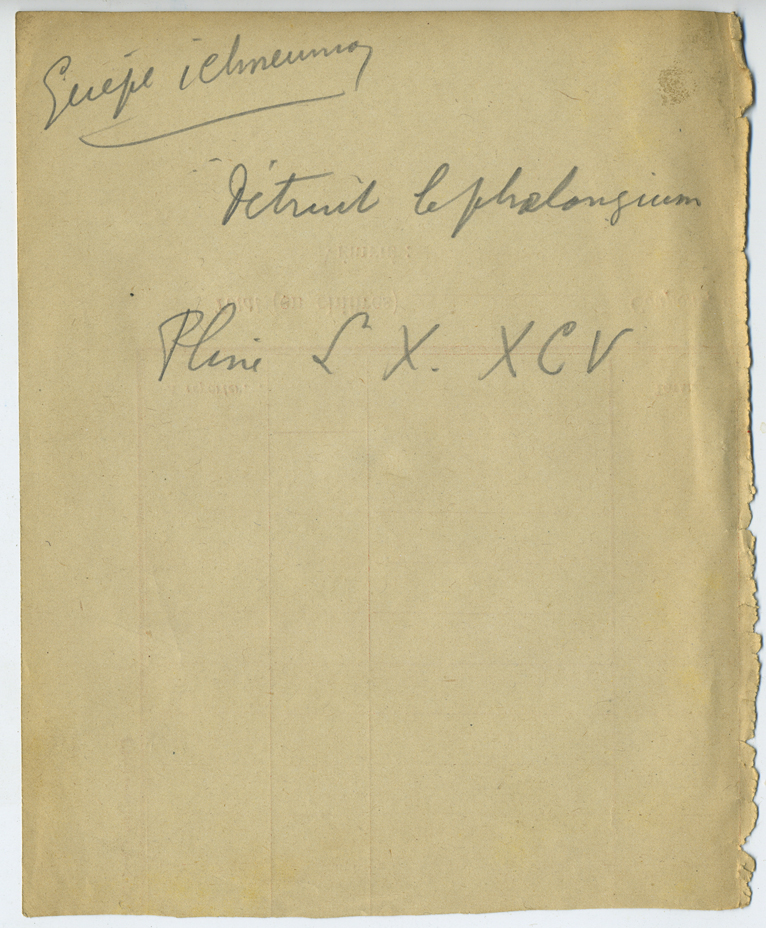 Guêpe ichneumon
Détruit le phalangium
Pline L X. XCV
(en chiffres)